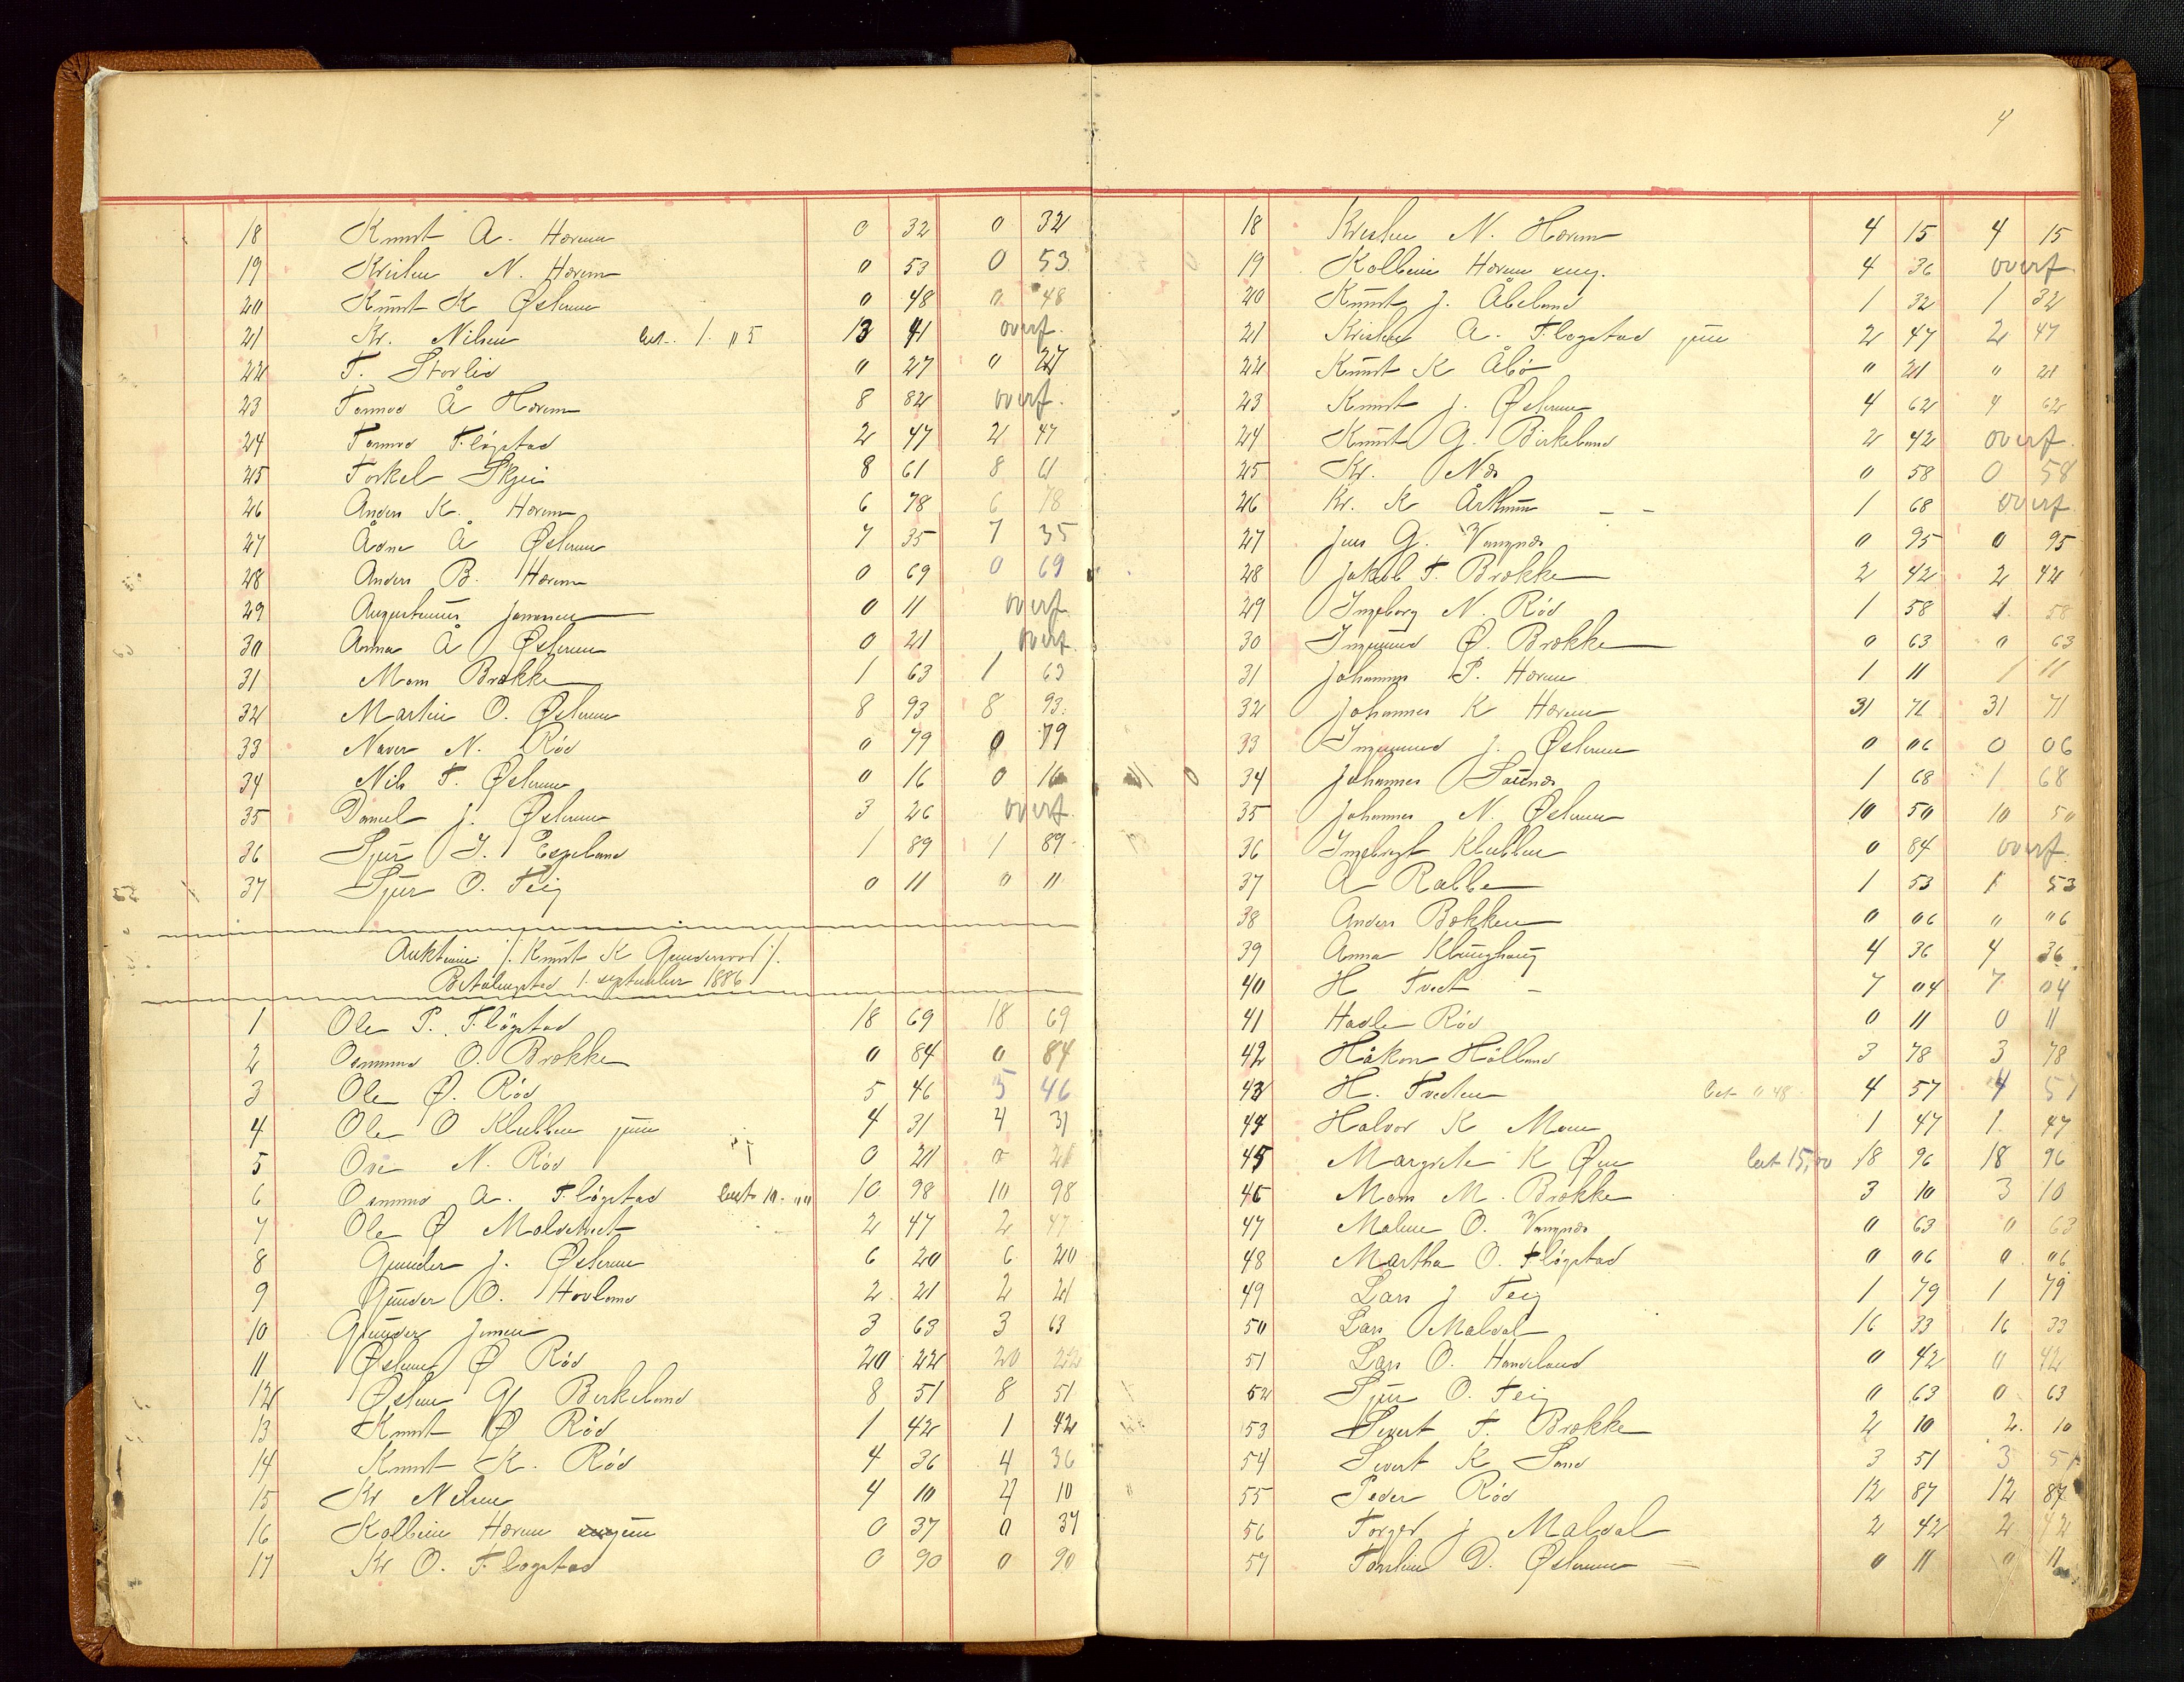 18 Knut A. Hærem 0 32 0 32
19 Kristen N. Hærem 0 53 0 53
20 Knut K Østrem 0 48 0 48
21 Kr. Nilsen bet. 1. 05 13 41 overf.
22 T. Storlid 0 27 0 27
23 Tormod Å Hærem 8 82 overf.
24 Tormod Fløgstad 2 47 2 47
25 Torkel Skjei 8 61 8 61
26 Anders K. Hærem 6 78 6 78
27 Ådne Å Østrem 7 35 7 35
28 Anders B. Hærem 0 69 0 69
29 Augustinus 0 11 overf
30 Anna Å Østrem 0 21 overf.
31 Mons Brekke 1 63 1 63
32 Martin O. Østrem 8 93 8 93.
33 N. Rød 0 79 0 79
34 Nils T. Østrem 0 16 0 16
35 Daniel J. Østrem 3 26 overf.
36 Sjur I. Espeland 1 89 1 89
37 Sjur O. Teig 0 11 0 11
Auktion /: Knut K :/.
1. september 1886
1 Ole P. Fløgstad 18 69 18 69
2 Osmund O. Brekke 0 84 0 84
3 Ole Ø. Rød 5 46 5 46
4 Ole O Klubben jun 4 31 4 31
5 N. Rød 0 21 0 21
6 Osmund A. Fløgstad bet 10. 00 10 98 10 98
7 Ole Ø 2 47 2 47
8 Gunder J. Østrem 6 20 6 20
9 Gunder O. Hovland 2 21 2 21
10 Gunder Jensen 3 63 3 63
11 Østen Ø Rød 20 22 20 22
12 Østen G Birkeland 8 51 8 51
13 Knut Ø Rød 1 42 1 42
14 Knut K. Rød 4 36 4 36
15 Kr Nilsen 4 10 4 10
16 Kolbein Hærem jun 0 37 0 37
17 Kr O. Fløgstad 0 90 0 90
4
18 Kristen N. Hærem 4 15 4 15
19 Kolbein Hærem ung. 4 36 overf
20 Knut J. Åbeland 1 32 1 32
21 Kristen A. Fløgstad jun 2 47 2 47
22 Knut K Åbø 0 21 0 21
23 Knut J. Østrem 4 62 4 62
24 Knut G. Birkeland 2 42 overf.
25 Kr. Næs 0 58 0 58
26 Kr. K Årthun 1 68 overf
27 Jens G. Vangnæs 0 95 0 95
28 Jakob T. Brekke 2 42 2 42
29 Ingeborg N. Rød 1 58 1 58
30 Ingmund Ø. Brekke 0 63 0 63
31 Johannes P. Hærem 1 11 1 11
32 Johannes K Hærem 31 71 31 71
33 Ingmund J. Østrem 0 06 0 06
34 Johannes 1 68 1 68
35 Johannes N. Østrem 10 50 10 50
36 Ingebrigt Klubben 0 84 overf.
37 A Rabbe 1 53 1 53
38 Anders Bekken 0 06 0 06
39 Anna Klunghaug 4 36 4 36
40 H Tvedt 7 04 7 04
41 Hadle Rød 0 11 0 11
42 Håkon Hålland 3 78 3 78
43 H. Tveten bet 0 48 4 57 4 57
44 Halvor K Moen 1 47 1 47
45 Margrete K Øen bet 15,00 18 96 18 96
46 Mons M. Brekke 3 10 3 10
47 Malene O. Vangnæs 0 63 0 63
48 Martha O. Fløgstad 0 06 0 06
49 Lars J Teig 1 79 1 79
50 Lars Maldal 16 33 16 33
51 Lars O. Handeland 0 42 0 42
52 Sjur O. Teig 0 63 0 63
53 Sivert T. Brekke 2 10 2. 10
54 Sivert K Sand 3 51 3 51
55 Peder Rød 12 87 12 87
56 Torger J Maldal 2 42 2 42
57 D. Østrem 0 11 0 11